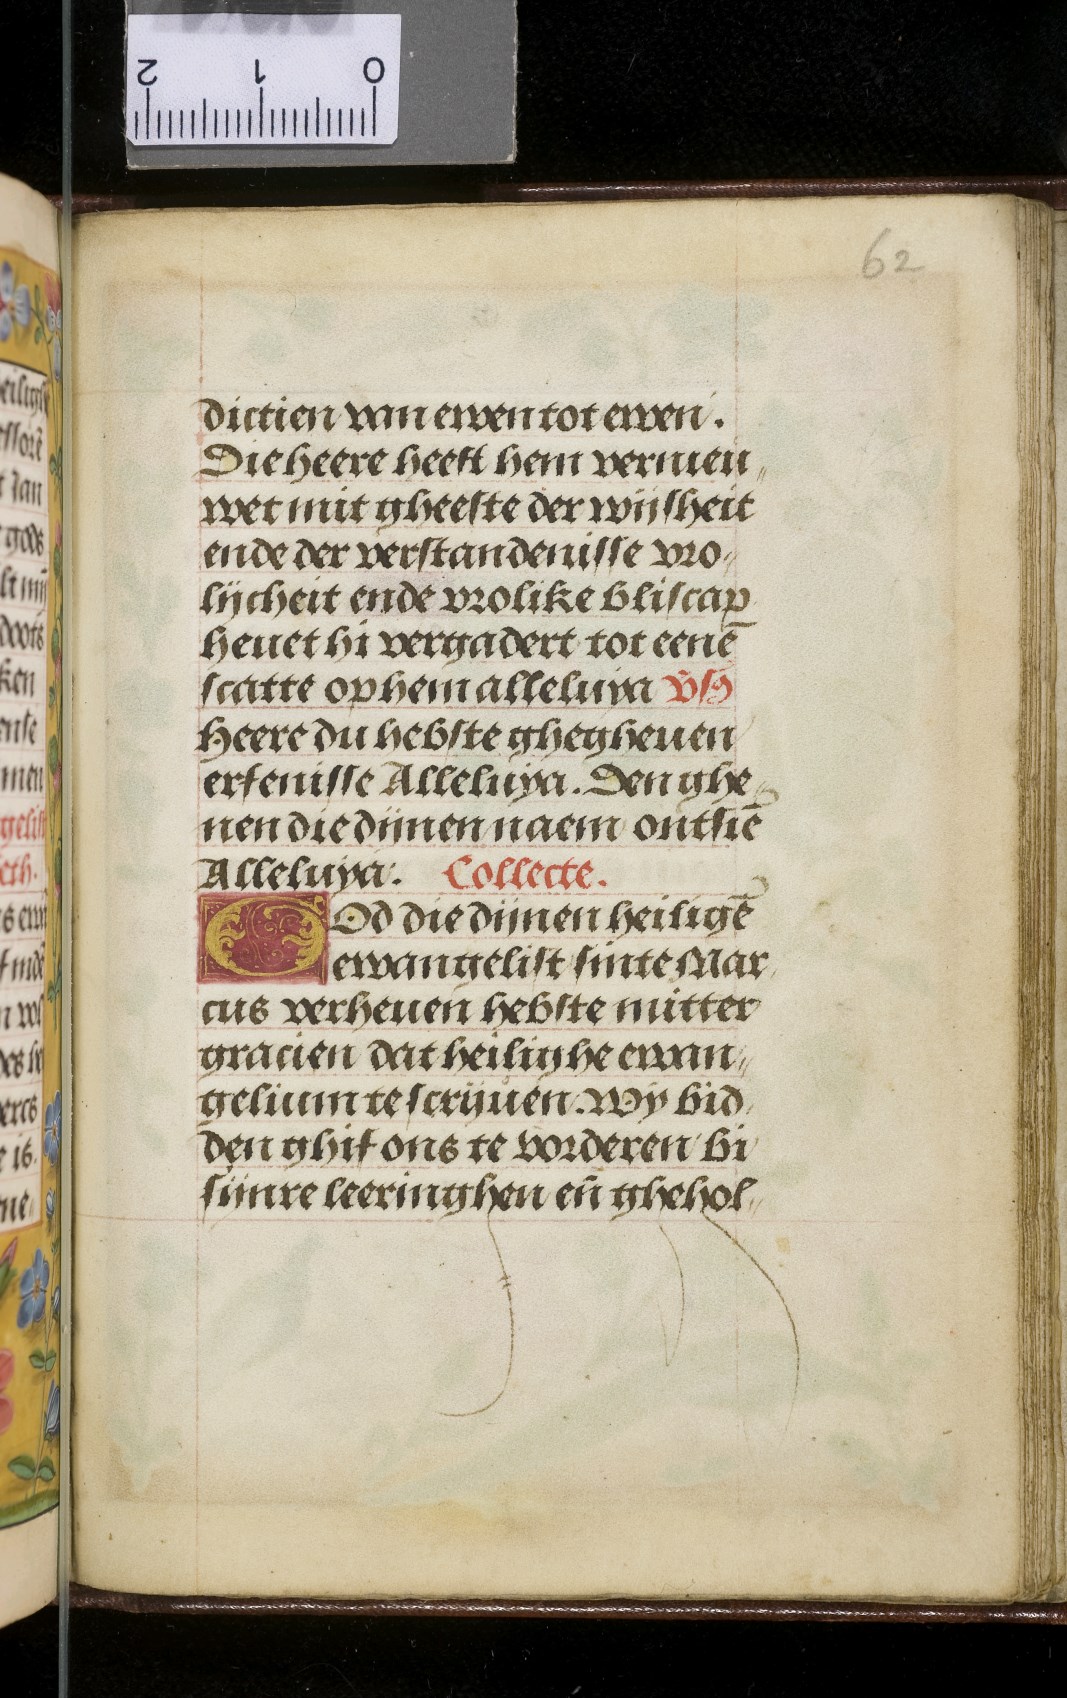 2 1 0
62
dictien van ewen tot ewen.
Die heere heeft hem vernieu„
wet mit gheeste der wijsheit
ende der verstandenisse vro„
lijcheit ende vrolike bliscap
heuet hi vergadert tot eenē
scatte op hem alleluya vs̄
Heere du hebste ghegheuen
erfenisse Alleluya. Den ghe„
nen die dijnen naem ontsiē
Alleluya. Collecte.
God die dijnen heiligē
ewangelist sinte Mar„
cus verheuen hebste mitter
gracien dat heilighe ewan„
gelium te scrijuen. Wy bid„
den ghif ons te vorderen bi
sijnre leeringhen eñ ghehol„